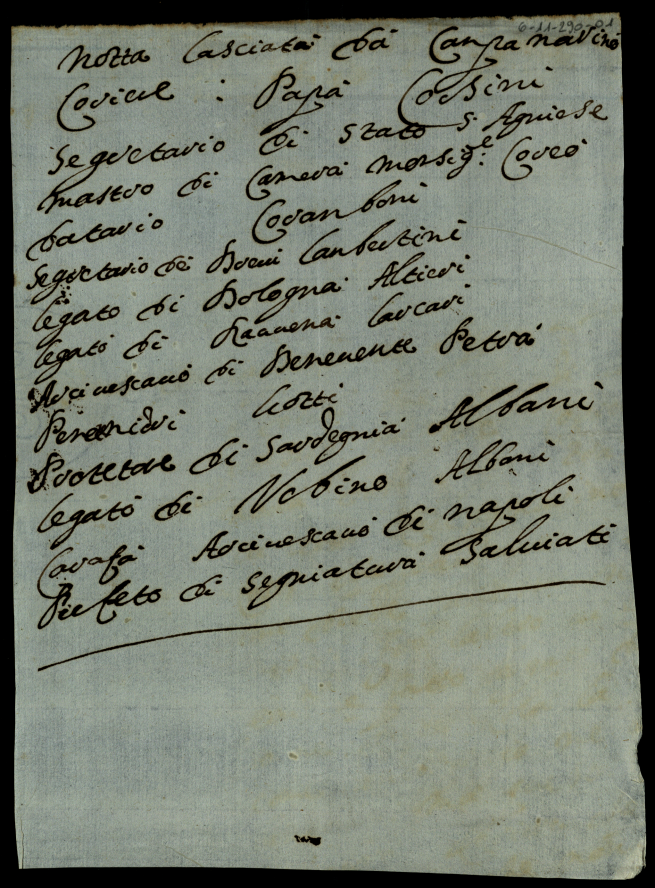 6-11-290-01
Notta lasciata da Canpanavino
Coriere : Papa Corsini
Segretario di Stato S. Agniese
Mastro di Camera Monsig.e Coreo
Datario Coranboni
Segretario dei Brevi Lanbertini
legato di Bologna Altieri
legato di Ravvena Larcari
Arcivescavo di Benevente Petra
Penetnidri Gotti
Protetore di Sardegnia Albani
legato di Urbino Albani
Carafa Arcivescavo di napoli
Prefeto di Segniatura Salviati